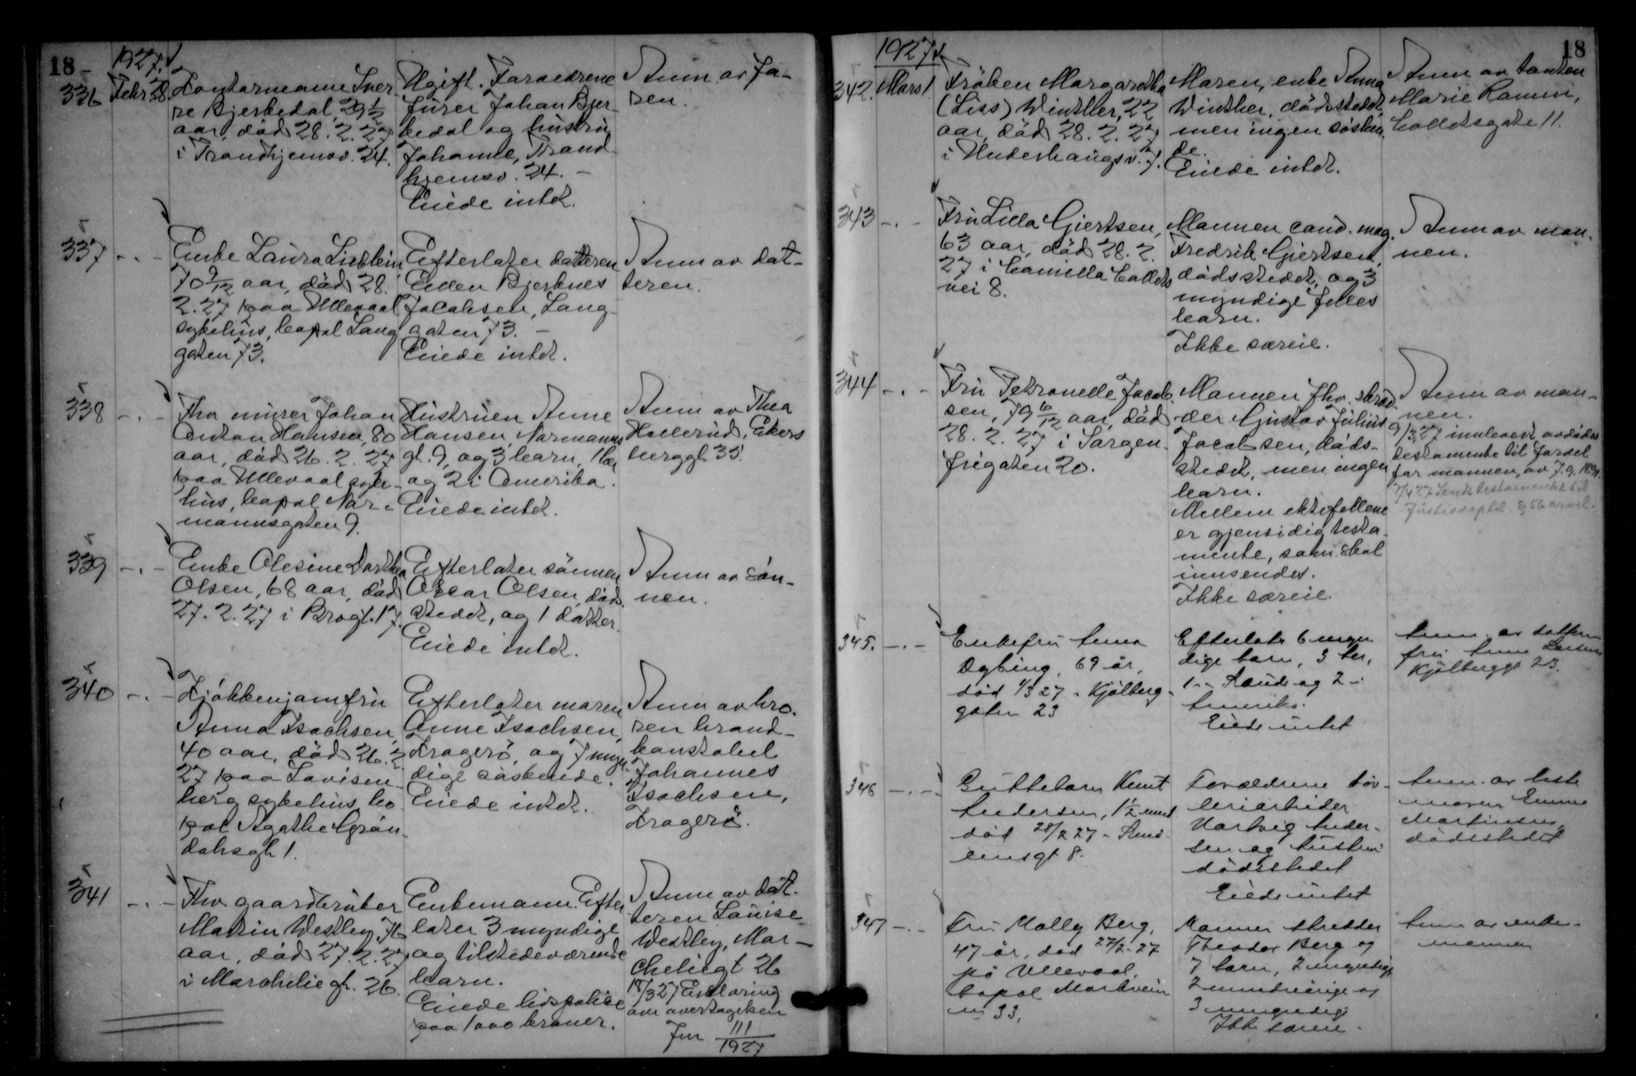 18
1927.
336 Febr. 28. Kontormann Sver-
re Bjerkedal, 29 1/2
aar, død 28. 2. 27
i Trondhjemsv. 24.
Ugift. Foraeldrene
furer Johan Bjer-
kedal og hustru
Johanne, Trond-
hjemsv. 24. –
Eiede intet.
Anm. av fa-
ren.
337 - . - Enke Laura Lieblein,
70 9/12 aar, død 28.
2. 27 paa Ullevaal
sykehus, bopæl Lang-
gaten 73.
Efterlater datteren
Ellen Bjerknes
Jacobsen, Lang-
gaten 73. –
Eiede intet.
Anm. av dat-
teren.
338 - . - Fhv. murer Johan
Anton Hansen, 80
aar, død 26. 2. 27
paa Ullevaal syke-
hus, bopæl Nor-
mannsgaten 9.
Hustruen Anne
Hansen, Normanns
gt. 9, og 3 barn, 1 her
og 2 i Amerika.
Eiede intet.
Anm. av Thea
Hollerud, Ekers
berggt. 35.
339 - . - Enke Olesine Dorthea
Olsen, 68 aar, død
27. 2. 27 i Brogt. 17.
Efterlater sønnen
Oscar Olsen, døds-
stedet, og 1 datter.
Eiede intet.
Anm. av søn-
nen.
340 - . - Kjøkkenjomfru
Anna Isachsen,
40 aar, død 26. 2.
27 paa Lovisen-
berg sykehus, bo-
pæl Agathe Grøn-
dahsgt. 1.
Efterlater moren
Anne Isachsen,
Kragerø, og 7 myn-
dige søskende.
Eiede intet.
Anm. av bro-
ren brand-
konstabel
Johannes
Isachsen,
Kragerø.
341 - . - Fhv. gaardbruker
Martin Westley, 76
aar, død 27. 2. 27
i Marcheliegt. 26.
Enkemann. Efter-
later 3 myndige
og tilstedeværende
barn.
Eiede livspolise
paa 1000 kroner.
Anm. av dat-
teren Louise
Westley, Mar-
cheliegt 26
18/3 27 Erklæring
om overtagelsen
Jnr 111/1927
18
1927.
342. Mars 1 Frøken Margarethe
(Liss) Winther, 22
aar, død 28. 2. 27
i Underhaugsv. 7.
Moren, enke Anna
Winther, dødsstedet,
men ingen søsken-
de.
Eiede intet.
Anm. av tanten
Marie Ramm,
Colletsgate 11.
343 - . - Fru Lilla Gjertsen,
63 aar, død 28. 2.
27 i Camilla Colletts
vei 8.
Mannen cand. mag.
Fredrik Gjertsen,
dødsstedet, og 3
myndige felles
barn.
Ikke særeie.
Anm av man-
nen.
344 - . - Fru Petronelle Jacob-
sen, 79 6/12 aar, død
28. 2. 27 i Sorgen-
frigaten 20.
Mannen fhv. skræd-
der Gustav Julius
Jacobsen, døds-
stedet, men ingen
barn.
Mellem ektefellene
er gjensidig testa-
mente, som skal
innsendes.
Ikke særeie.
Anm av man-
nen.
9/3 27 innlevert avdødes
testamente til fordel
for mannen, av 7. 9.
7/4 27 Sendt testamentet til
Justisdept. § 56 arvel.
345. - . - Enkefru
Dybing, 69 år,
død 1/3 27 i Kjølberg-
gaten 23
Efterlater 6 myn-
dige barn, 3 her,
1 i og 2 i
Amerika.
Eiede intet
Anm. av datteren
fru Larsen,
Kjølberggt 23.
346 - . - Guttebarn Knut
Andersen, 1 1/2 mnd
død 28/2 27 i
8.
Foreldrene
arbeider
Hartvig Ander-
sen og hustru
dødsstedet
Eiede intet
Anm. av beste-
moren Emma
Martinsen,
dødsstedet
347 - . - Fru Molly Berg,
47 år, død 27/2 27
på Ullevaal,
bopæl Markveien
33.
Mannen skredder
Theodor Berg og
7 barn, 2 myndige
2 mindreårige og
3 umyndige
Ikke særeie.
Anm av enke-
mannen